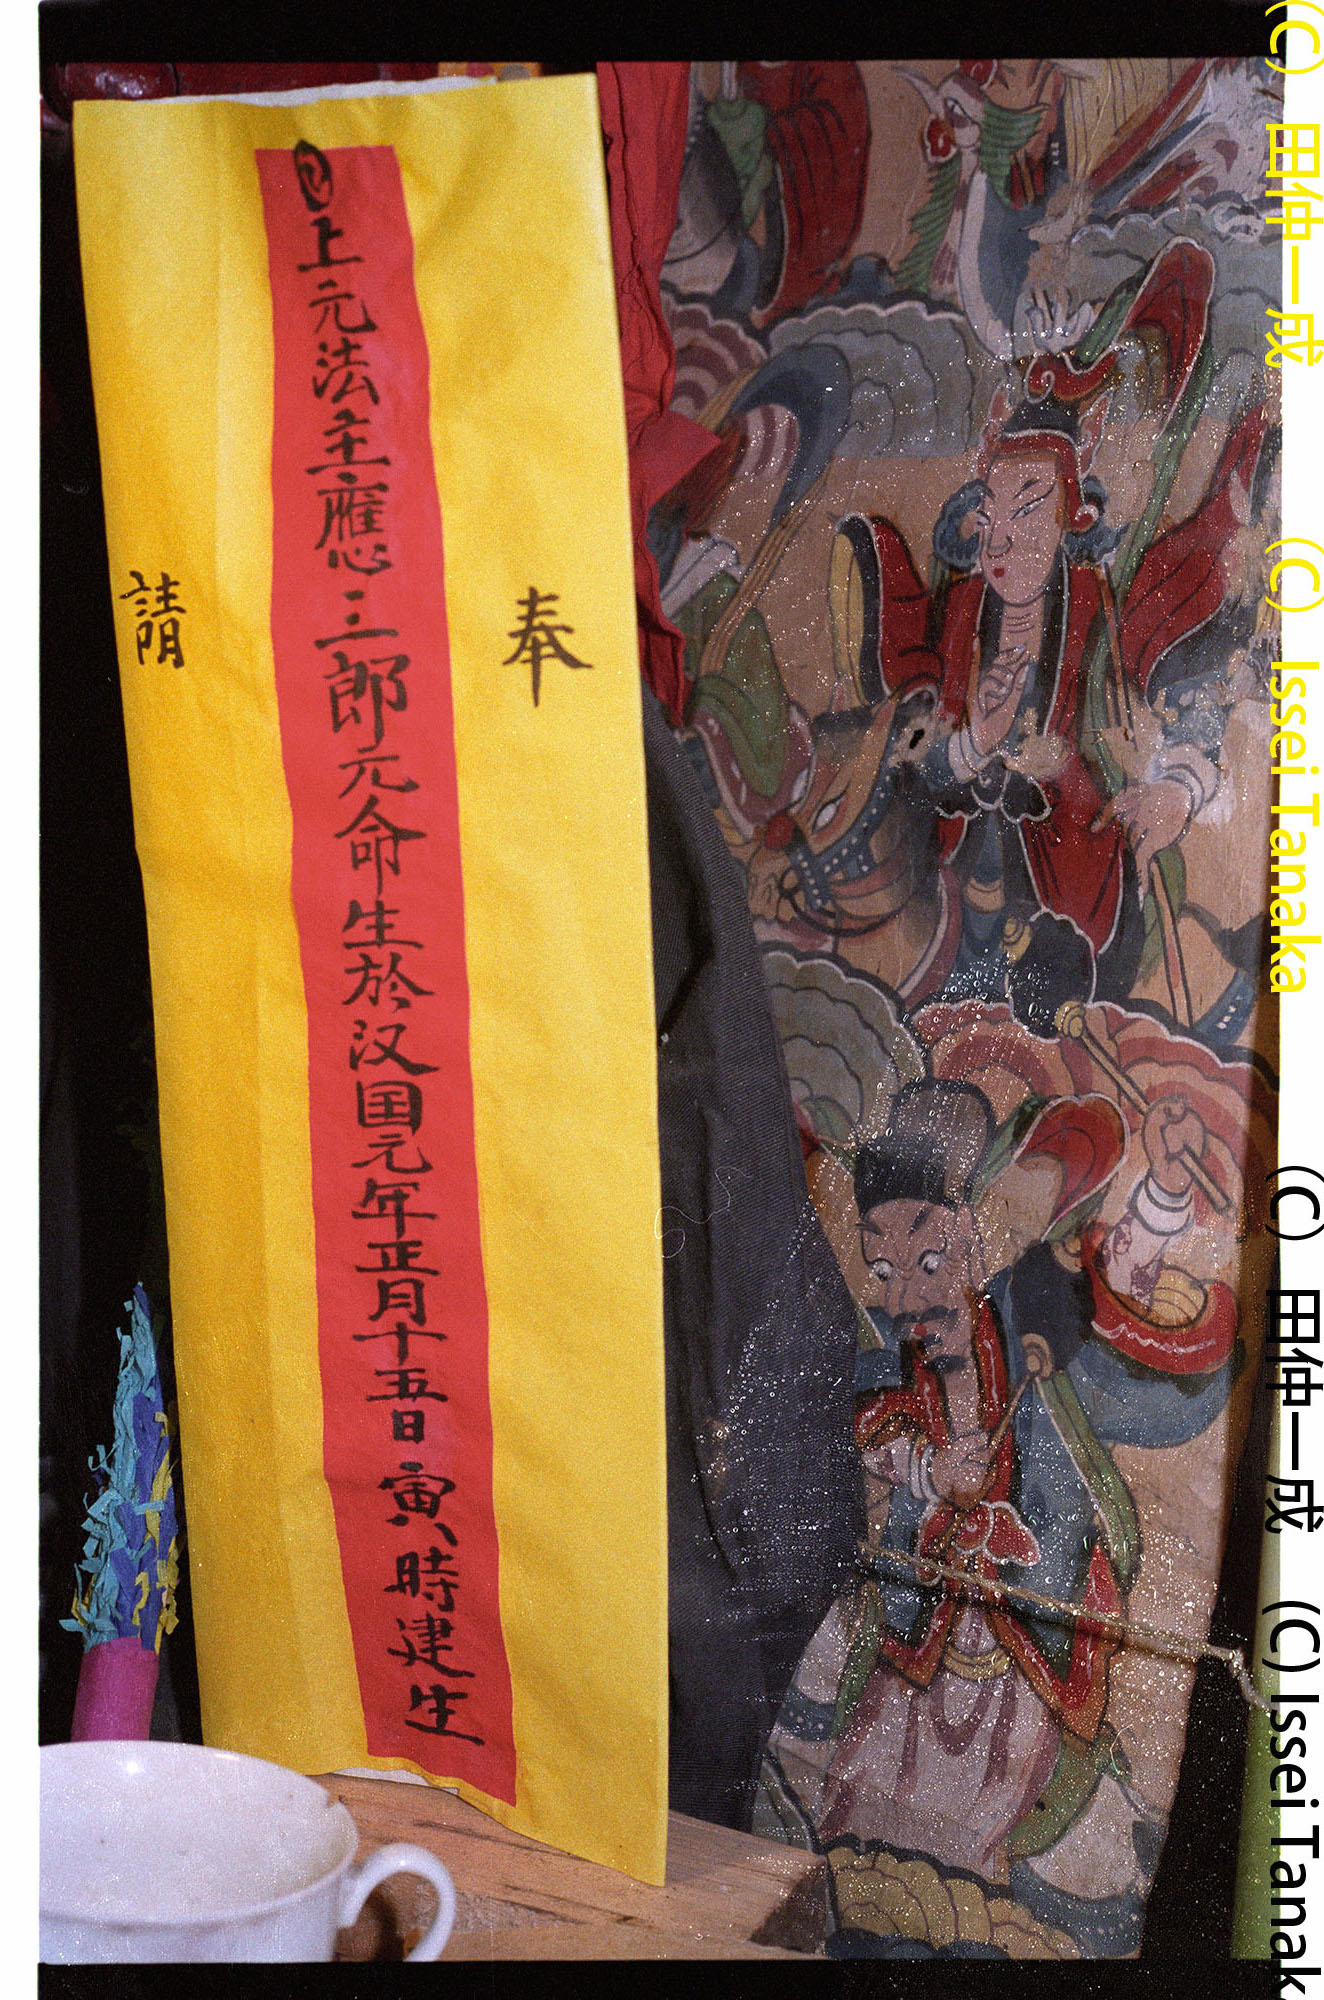 奉
上元法主應三郎元命生於汉国元年正月十五日寅時建生
請
(C) 田仲一成 (C) Issei Tanaka
(C) 田仲一成 (C) Issei Tanak